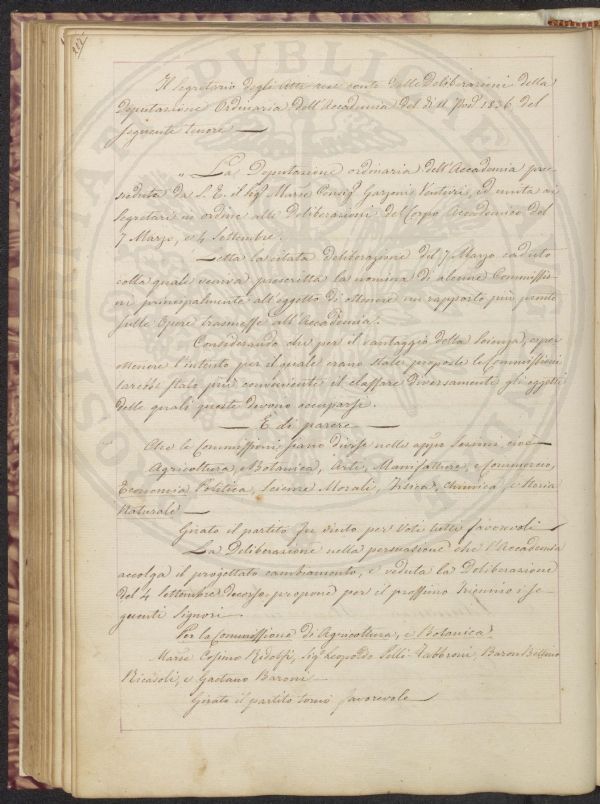 212.
Il Segretario degli Atti rese conto delle Deliberazioni della
Deputazione Ordinaria dell'Accademia del dì 11 1836 del
seguente tenore —
" La Deputazione ordinaria dell'Accademia pre-
seduta da S. E. il Sig. March. Consig. Garzoni Venturi, ed unita ai
Segretari in ordine alle Deliberazioni del Corpo Accademico del
7 Marzo, e 4 Settembre.
Letta la citata deliberazione del 7 Marzo caduto
colla quale veniva prescritta la nomina di alcune Commissio-
ni principalmente all'oggetto di ottenere un rapporto più pronto
sulle Opere trasmesse all'Accademia.
Considerando che per il vantaggio della Scienza, e per
ottenere l'intento per il quale erano state proposte le Commissioni
sarebbe stato più conveniente il classare diversamente gli oggetti
delle quali queste devono occuparsi.
— È di parere —
Che le Commissioni siano divise nelle Sezioni, cioè —
Agricoltura, e Botanica, Arti, Manifatture, e Commercio,
Economia Politica, Scienze Morali, Fisica, Chimica, e Storia
Naturale —
Girato il partito fu vinto per Voti tutti favorevoli —
La Deliberazione nella persuasione che l'Accademia
accolga il progettato cambiamento, e veduta la Deliberazione
del 4 Settembre decorso, propone per il prossimo Triennio i se-
guenti Signori —
Per la Commissione di Agricoltura, e Botanica.
March. Cosimo Ridolfi, Sig. Leopoldo Pelli-Fabbroni, Baron Bettino
Ricasoli, e Gaetano Baroni —
Girato il partito tornò favorevole —